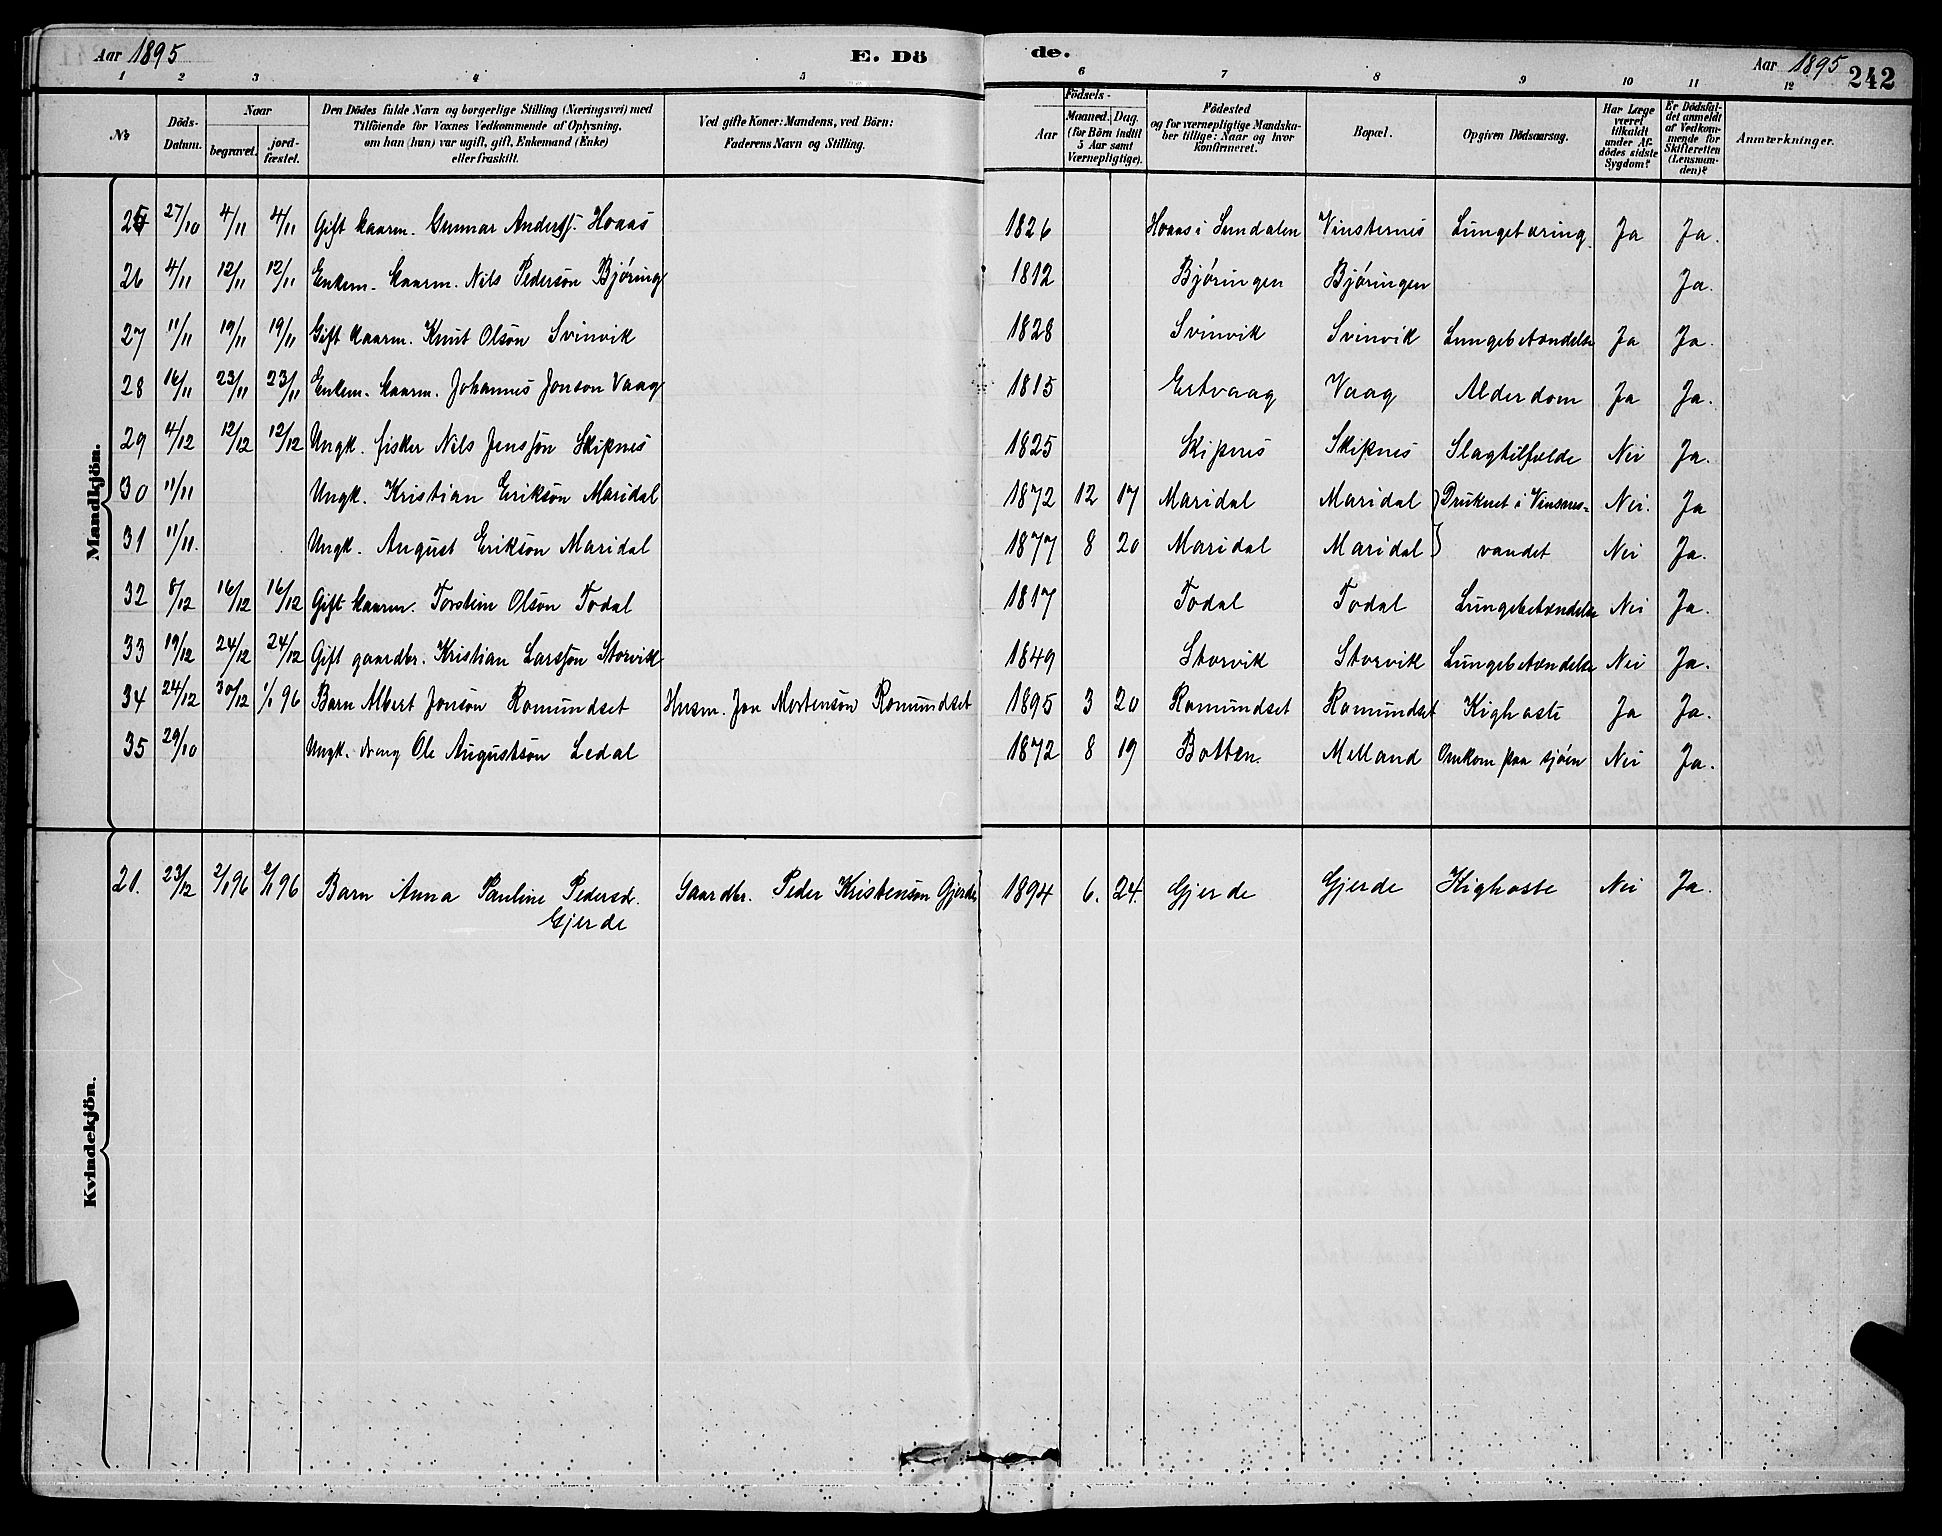 Aar 1895 E. Dö de. Aar 1895 242
1 2 3 4 5 6 7 8 9 10 11 12
No Döds-Datum. Naar begravet. jord-fæstet. Den Dödes fulde Navn og borgerlige Stilling (Næringsvei) med Tilföiende for Voxnes Vedkommende af Oplysning, om han (hun) var ugift, gift, Enkemand (Enke) eller fraskilt. Ved gifte Koner: Mandens, ved Börn: Faderens Navn og Stilling. Födsels- Aar Maaned. Dag. (for Börn indtil 5 Aar samt Værnepligtige). Födested og for værnepligtige Mandska-ber tillige: Naar og hvor konfirmeret. Bopæl. Opgiven Dödsaarsag. Har Læge været tilkaldt under Af-dödes sidste Sygdom? Er Dödsfal-det anmeldt af Vedkom-mende for Skifteretten (Lensman-den)? Anmærkninger.
Mandkjön.
25 27/10 4/11 4/11 Gift kaarm. Gunnar Anderss. Hoaas 1826 Hoaas i Sundalen Vinsternes Lungetæring Ja Ja.
26 4/11 12/11 12/11 Enkem. kaarm. Nils Pederson Bjøring 1812 Bjøringen Bjøringen Ja.
27 11/11 19/11 19/11 Gift kaarm. Knut Olson Svinvik 1828 Svinvik Svinvik Lungebetændelse Ja Ja.
28 16/11 23/11 23/11 Enkem. kaarm. Johannes Jonson Vaag 1815 Ertvaag Vaag Alderdom Ja Ja.
29 4/12 12/12 12/12 Ungk. fisker Nils Jensson Skipnes 1825 Skipnes Skipnes Slagtilfælde Nei Ja.
30 11/11 Ungk. Kristian Erikson Maridal 1872 12 17 Maridal Maridal Druknet i Vinsnes= Nei. Ja
31 11/11. Ungk. August Erikson Maridal 1877 8 20 Maridal Maridal vandet Nei Ja.
32 8/12 16/12 16/12 Gift kaarm. Torstein Olson Todal 1817 Todal Todal Lungebetændelse Nei Ja.
33 19/12 24/12 24/12 Gift gaardbr. Kristian Larsson Storvik 1849 Storvik Storvik Lungebetændelse Nei Ja.
34 24/12 30/12 1/1 96 Barn Albert Jonson Romundset Husm. Jon Mortenson Romundset 1895 3 20 Romundset Romundset Kighoste Ja Ja.
35 29/10 Ungk. dreng Ole Augustson Ledal 1872 8 19 Botten. Melland Omkom paa sjøen Nei Ja.
Kvindekjön.
21. 23/12 2/1 96 2/1 96 Barn Anna Pauline Pedersd. Gaardbr. Peder Kristenson Gjerde 1894 6. 24. Gjerde Gjerde Kighoste Nei Ja.
Gjerde